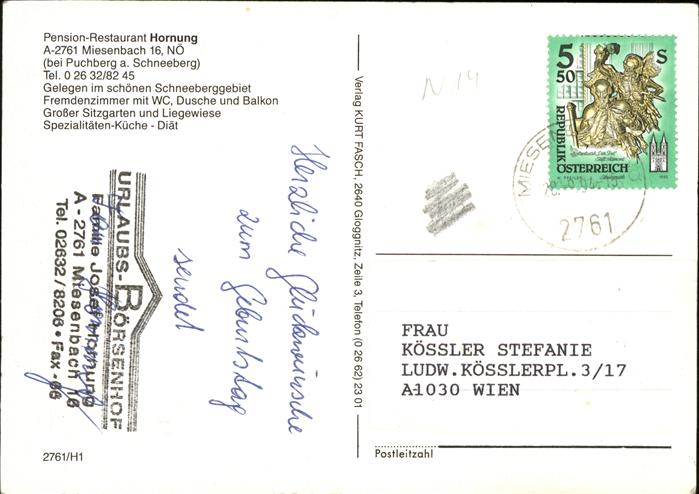 Pension-Restaurant Hornung
A-2761 Miesenbach 16, NÖ
(bei Puchberg a. Schneeberg)
Tel. 0 26 32/82 45
Gelegen im schönen Schneeberggebiet
Fremdenzimmer mit WC, Dusche und Balkon
Großer Sitzgarten und Liegewiese
Spezialitäten-Küche - Diät
Herzliche Glückwünsche
zum Geburtstag
sendet
URLAUBS-BÖRSENHOF
Familie Josef Hornung
A - 2761 Miesenbach 16
Tel. 02632 / 8206 • Fax -66
2761/H1
Verlag KURT FASCH, 2640 Gloggnitz, Zeile 3, Telefon (0 26 62) 23 01
N 14
5 50 S
REPUBLIK ÖSTERREICH
MIESEN
2761
FRAU
KÖSSLER STEFANIE
LUDW.KÖSSLERPL.3/17
A1030 WIEN
Postleitzahl